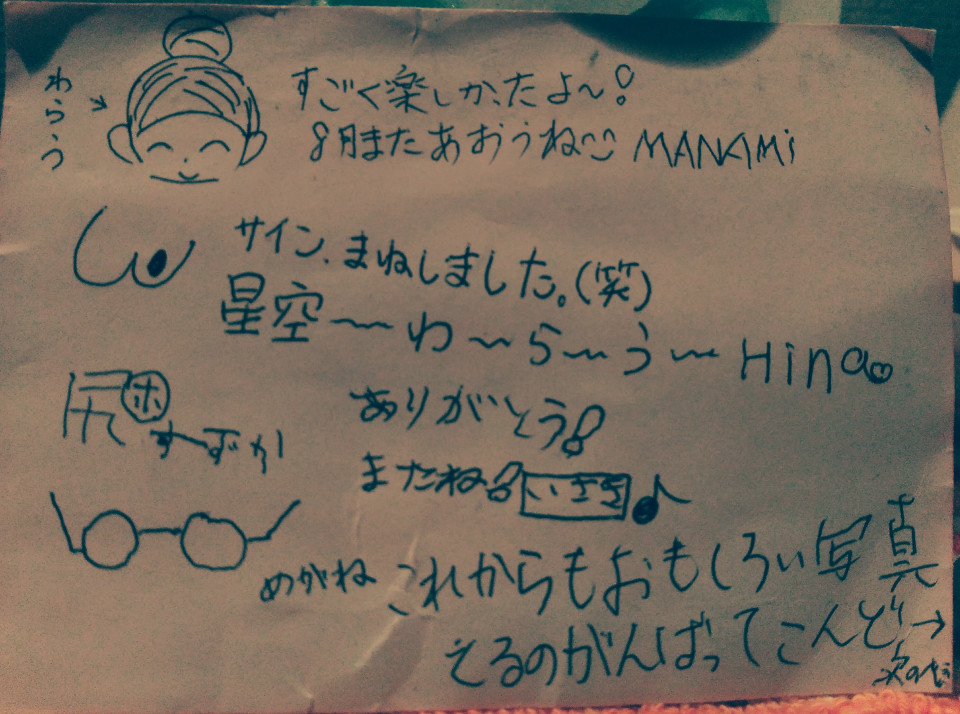 わらう
すごく楽しかったよ〜!
8月またあおうね MANAMi
サイン、まねしました。(笑)
星空〜わ〜ら〜う〜 Hina
尻 ホ
すずか
ありがとう!
またね! いさき♪
めがね
これからもおもしろい写真
とるのがんばってこんど→